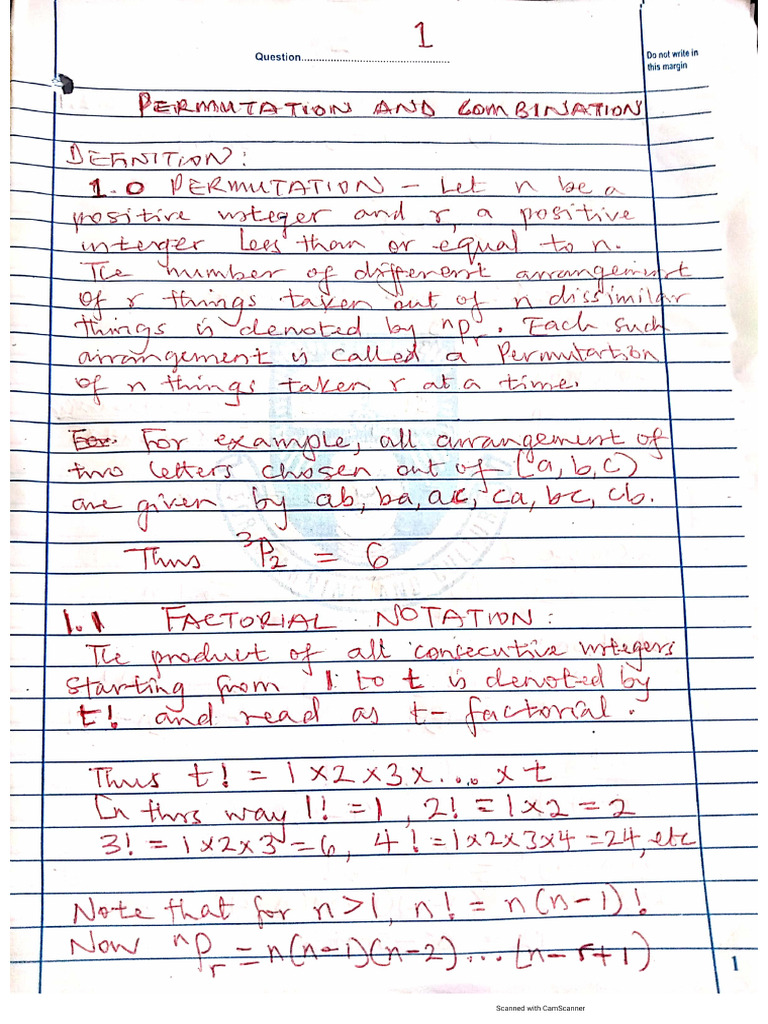 1
Question..................................................
Do not write in
this margin
PERMUTATION AND COMBINATION
DEFINITION:
1.0 PERMUTATION – Let n be a
positive integer and r, a positive
interger less than or equal to n.
The number of different arrangement
of r things taken out of n dissimilar
things is denoted by nPr. Each such
arrangement is called a Permutartion
of n things taken r at a time.
For example, all arrangement of
two letters chosen out of (a, b, c)
are given by ab, ba, ac, ca, bc, cb.
Thus ³P₂ = 6
1.1 FACTORIAL NOTATION:
The product of all consecutive integers
starting from 1 to t is denoted by
t! and read as t-factorial.
Thus t! = 1×2×3×.... × t
In this way 1! = 1, 2! = 1×2 = 2
3! = 1×2×3 = 6, 4! = 1×2×3×4 = 24, etc
Note that for n>1, n! = n(n-1)!
Now ⁿPr = n(n-1)(n-2)...(n-r+1)
1
Scanned with CamScanner